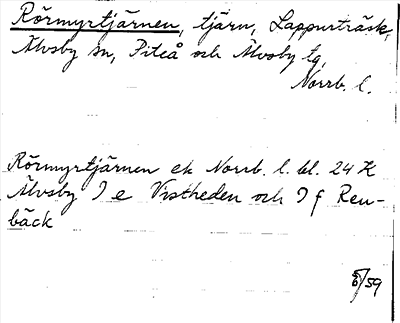 Rörmyrtjärnen, tjärn, Lappurträsk,
Älvsby sn, Piteå och Älvsby tg,
Norrb. l.
Rörmyrtjärnen ek Norrb. l. bl. 24 K
Älvsby I e Vistheden och I f Ren-
bäck
/59